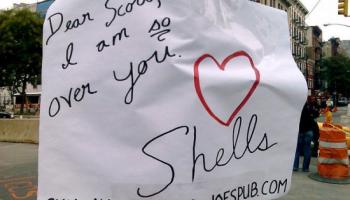 Dear Scott,
I am so
over you.
Shells
JOESPUB.COM